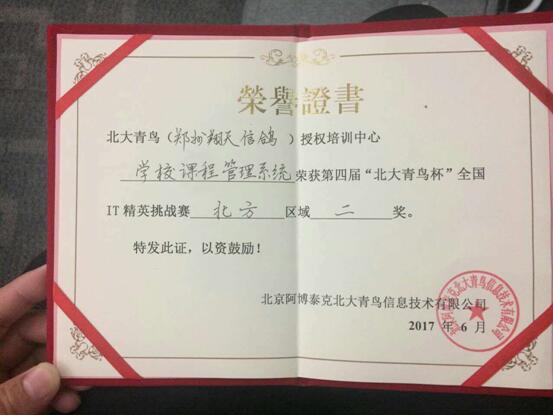 榮譽證書
北大青鸟（郑州翔天信鸽）授权培训中心
学校课程管理系统荣获第四届“北大青鸟杯”全国
IT精英挑战赛 北方 区域 二 奖。
特发此证，以资鼓励！
北京阿博泰克北大青鸟信息技术有限公司
2017年6月
北京阿博泰克北大青鸟信息技术有限公司